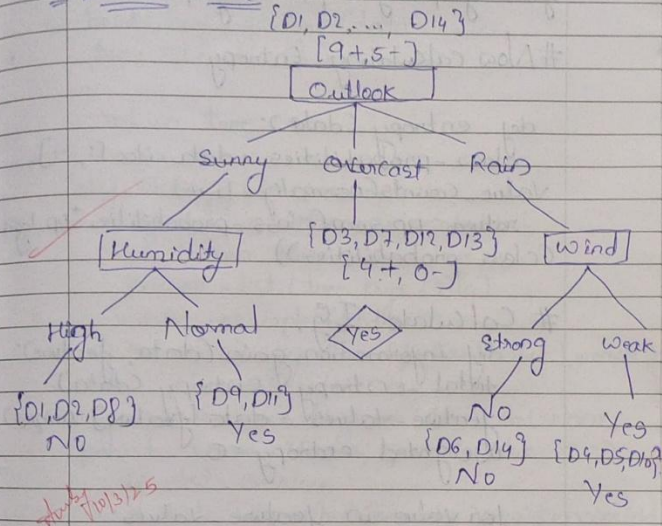 {D1, D2, ..., D14}
[9+, 5-]
Outlook
Sunny Overcast Rain
Humidity {D3, D7, D12, D13} Wind
[4+, 0-]
High Normal Yes Strong Weak
{D1, D2, D8} {D9, D11} No Yes
No Yes {D6, D14} {D4, D5, D10}
No Yes
10/3/25